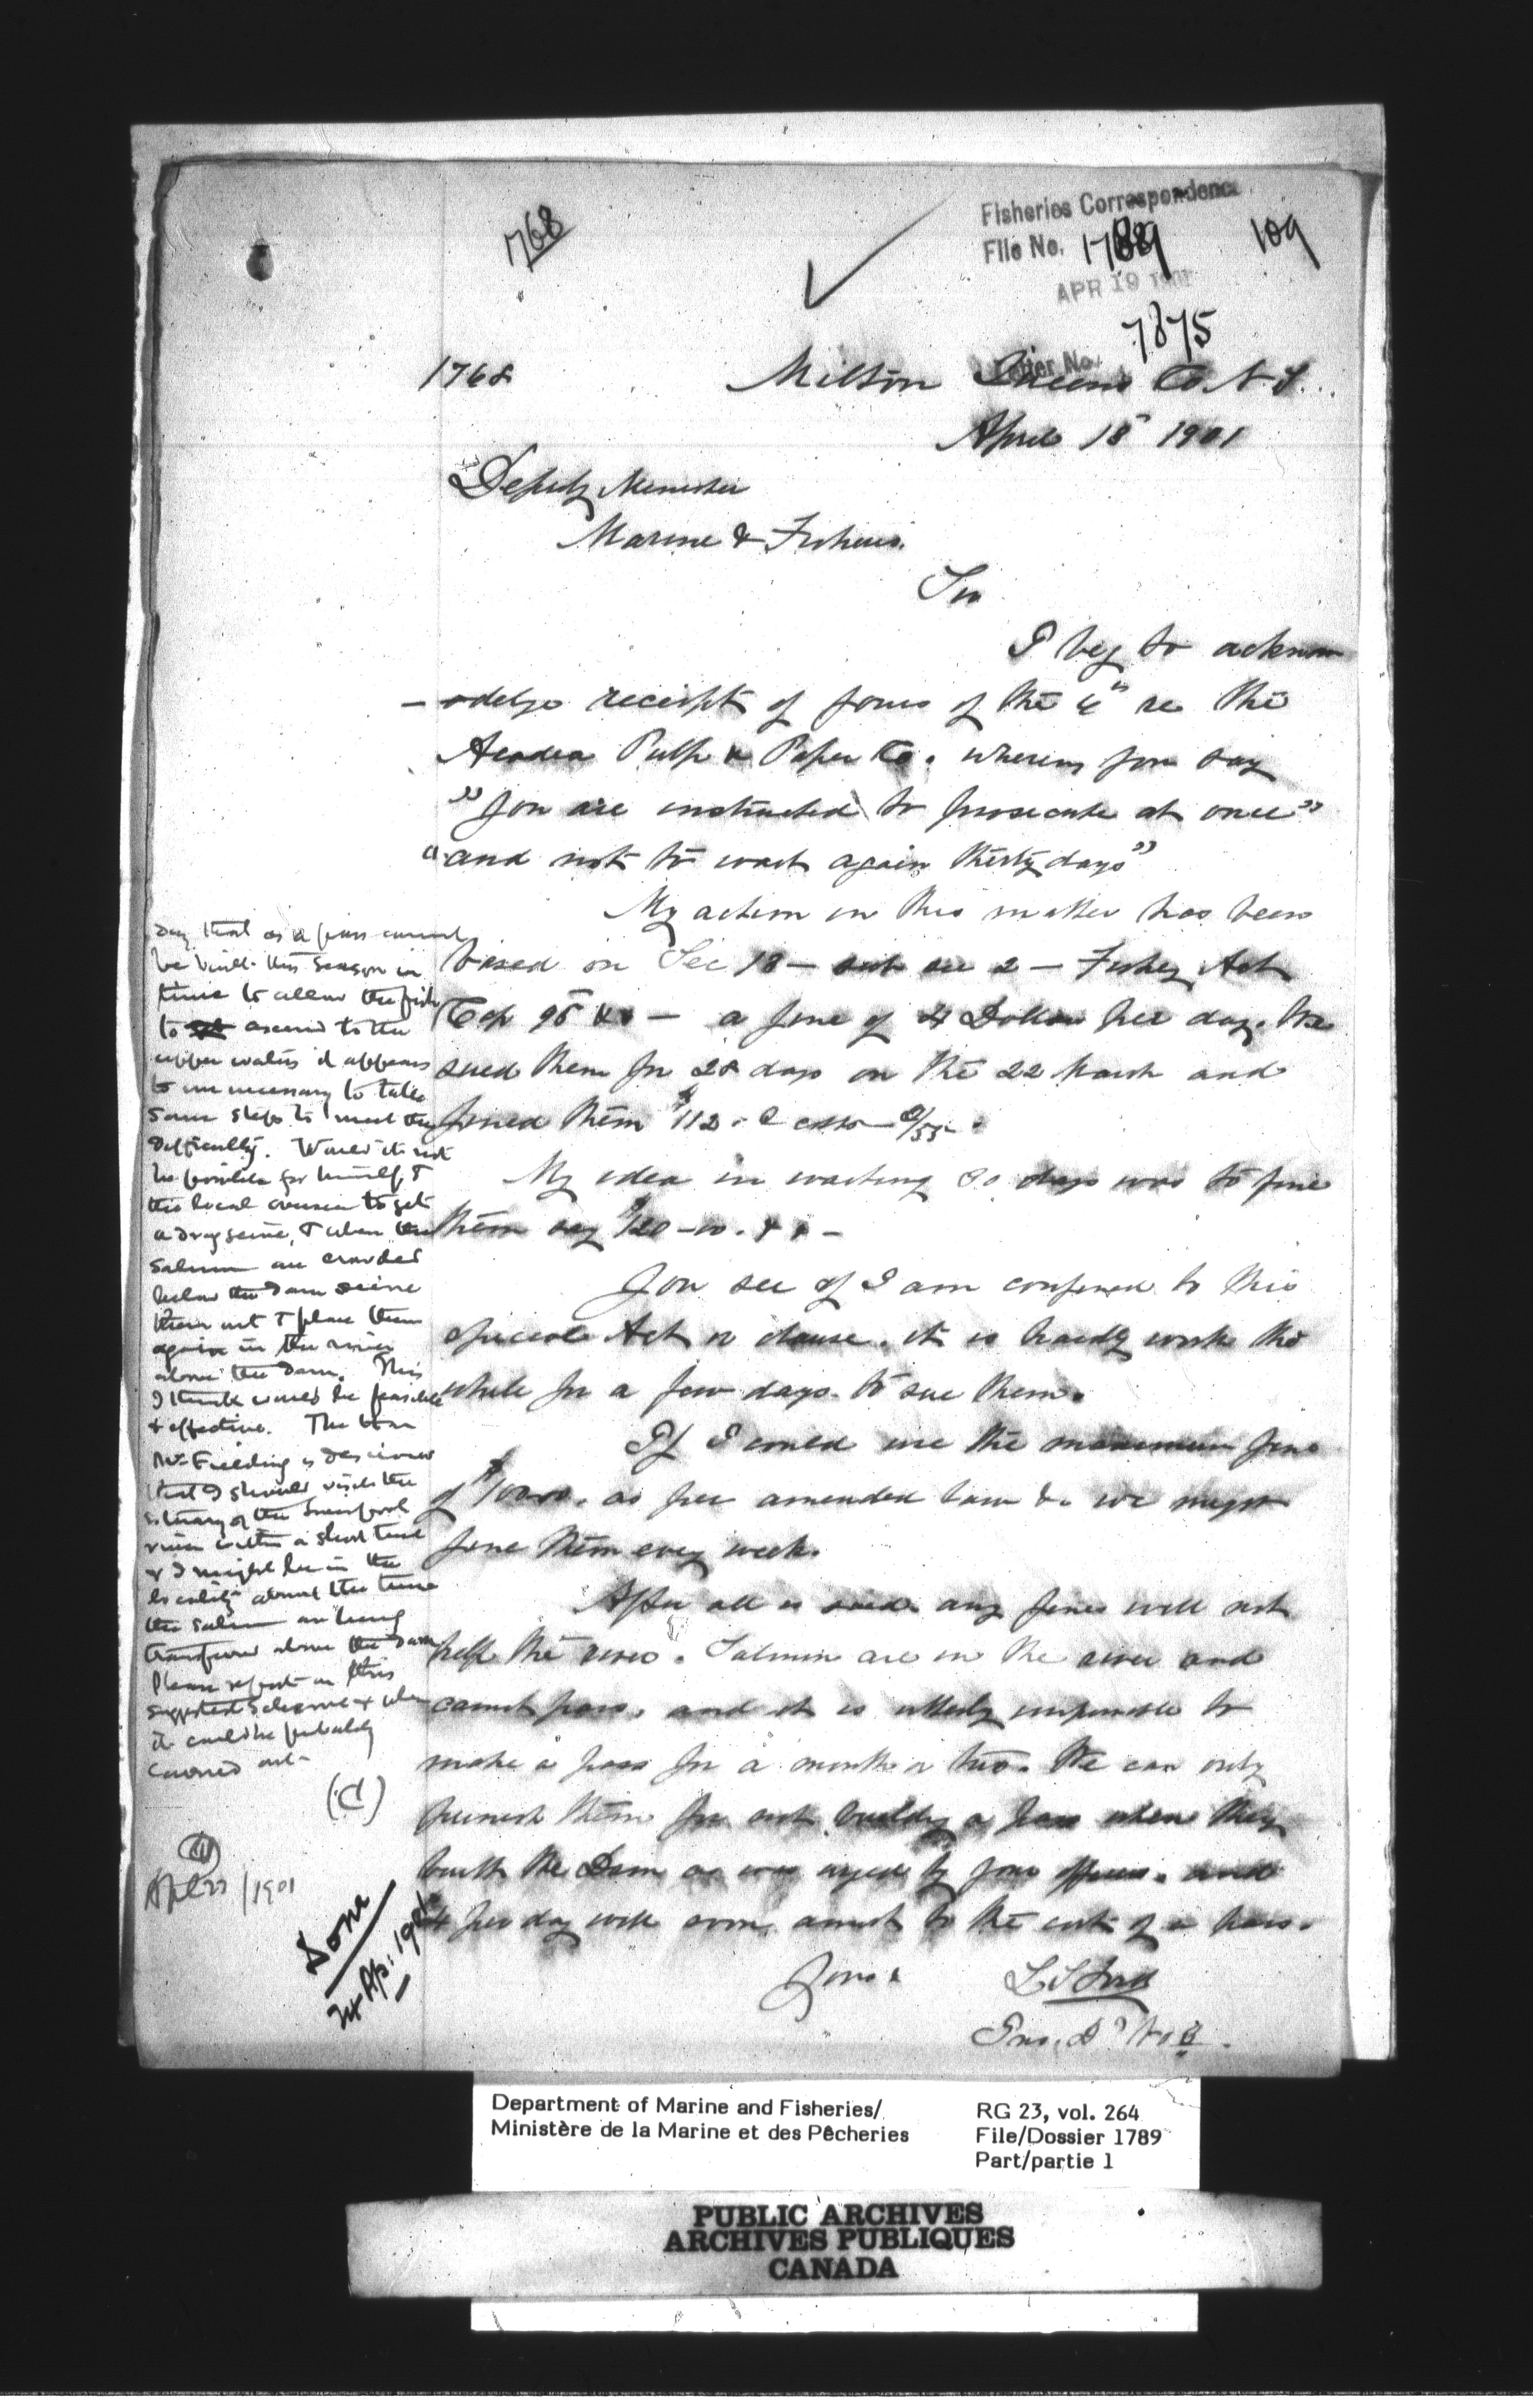 768
Fisheries Correspondence
File No. 1789 109
APR 19 1901
7875
Letter No.
1768 Milton Queens Co N.S.
April 18 1901
Deputy Minister
Marine & Fisheries.
Sir
I beg to acknow
-odelge receipt of yours of the re the
Acadia Pulp & Paper Co. wherein you say
"you are instructed to prosecute at once"
"and not to wait again thirty days"
My action in this matter has been
based on Sec 18 — sub sec 2 — Fishey Act
Cap 95 — a fine of 4 Dollars per day. We
sued them for 28 days on the 22 March and
fined them $112. & costs
My idea in waiting 30 days was to fine
them say $120
You see if I am confined to this
special Act or clause. it is hardly worth the
while for a few days to sue them.
If I could use the maximum fine
of $ as per amended Law &c we might
fine them every week.
After all is said any fines will not
help the river. Salmon are in the river and
cannot pass. and it is utterly impossible to
make a pass for a month or two. We can only
punish them for not building a pass when they
built the Dam as was urged by your officers. and
4 per day will soon amount to the cost of a pass.
Yours & L S Ford
Ins. D No 3.
Say that as a pass cannot
be built this season in
time to allow the fish
to ascend to the
upper waters it appears
to me necessary to take
some steps to meet the
difficulty. Would it not
be possible for himself &
the local overseer to get
a drag seine, & when the
salmon are crowded
below the Dam seine
them out & place them
again in the river
above the Dam. This
I think would be feasible
& effective. The Hon
Mr Fielding is desirous
that I should visit the
estuary of the Liverpool
river within a short time
& I might be in the
locality about the time
the salmon are being
transferred above the Dam
Please report on this
suggested scheme & when
it could be probably
carried out
Apl 23/1901
Done
24 Ap: 1901
Department of Marine and Fisheries/
Ministère de la Marine et des Pêcheries
RG 23, vol. 264
File/Dossier 1789
Part/partie 1
PUBLIC ARCHIVES
ARCHIVES PUBLIQUES
CANADA